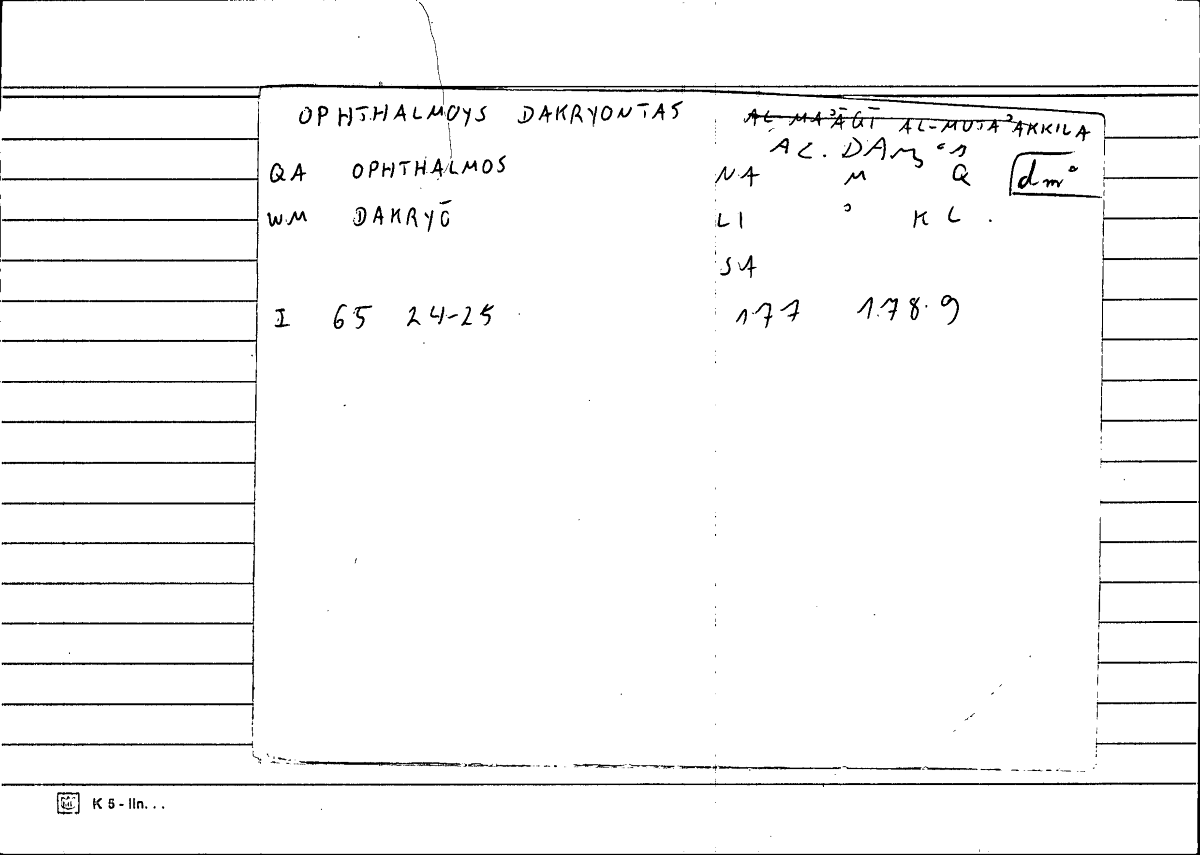 OPHTHALMOYS DAKRYONTAS
AL-MAʾĀQĪ AL-MUTAʾAKKILA
AL.
QA OPHTHALMOS
NA M Q dmʿ
WM DAKRYŌ
LI ʾ K L .
SA
I 65 24-25
177 178.9
K 5 - lln. . .